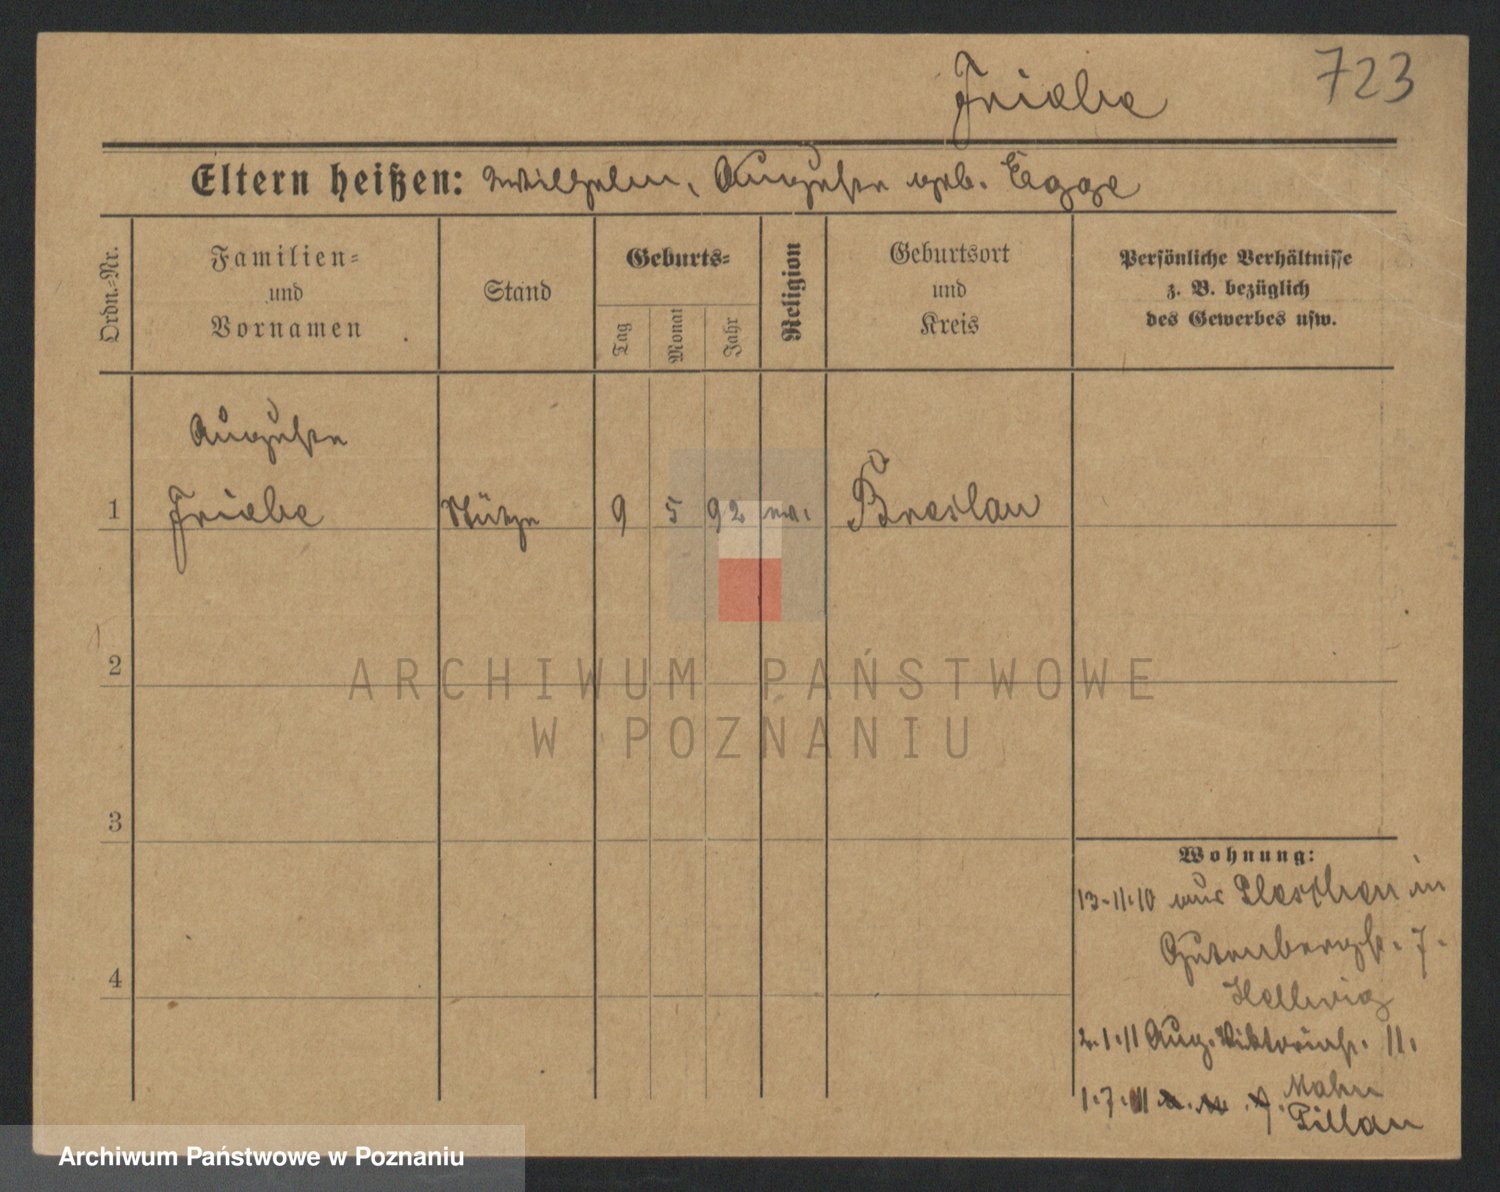 723
Friebe
Eltern heißen: Wilhelm, Auguste geb. Egge
Ordn.-Nr.
Familien-
und
Vornamen
Stand
Geburts-
Tag
Monat
Jahr
Religion
Geburtsort
und
Kreis
Persönliche Verhältnisse
z. B. bezüglich
des Gewerbes usw.
Auguste
1 Friebe Stütze 9 5 92 ev. Breslau
2
ARCHIWUM PAŃSTWOWE
W POZNANIU
3
Wohnung:
13.11.10 aus Pleschen in
Gutenbergstr. 7.
Hellwig
4
2.1.11 Aug. Viktoriastr. 11.
Mahn
1.7.11 Pillau
Archiwum Państwowe w Poznaniu